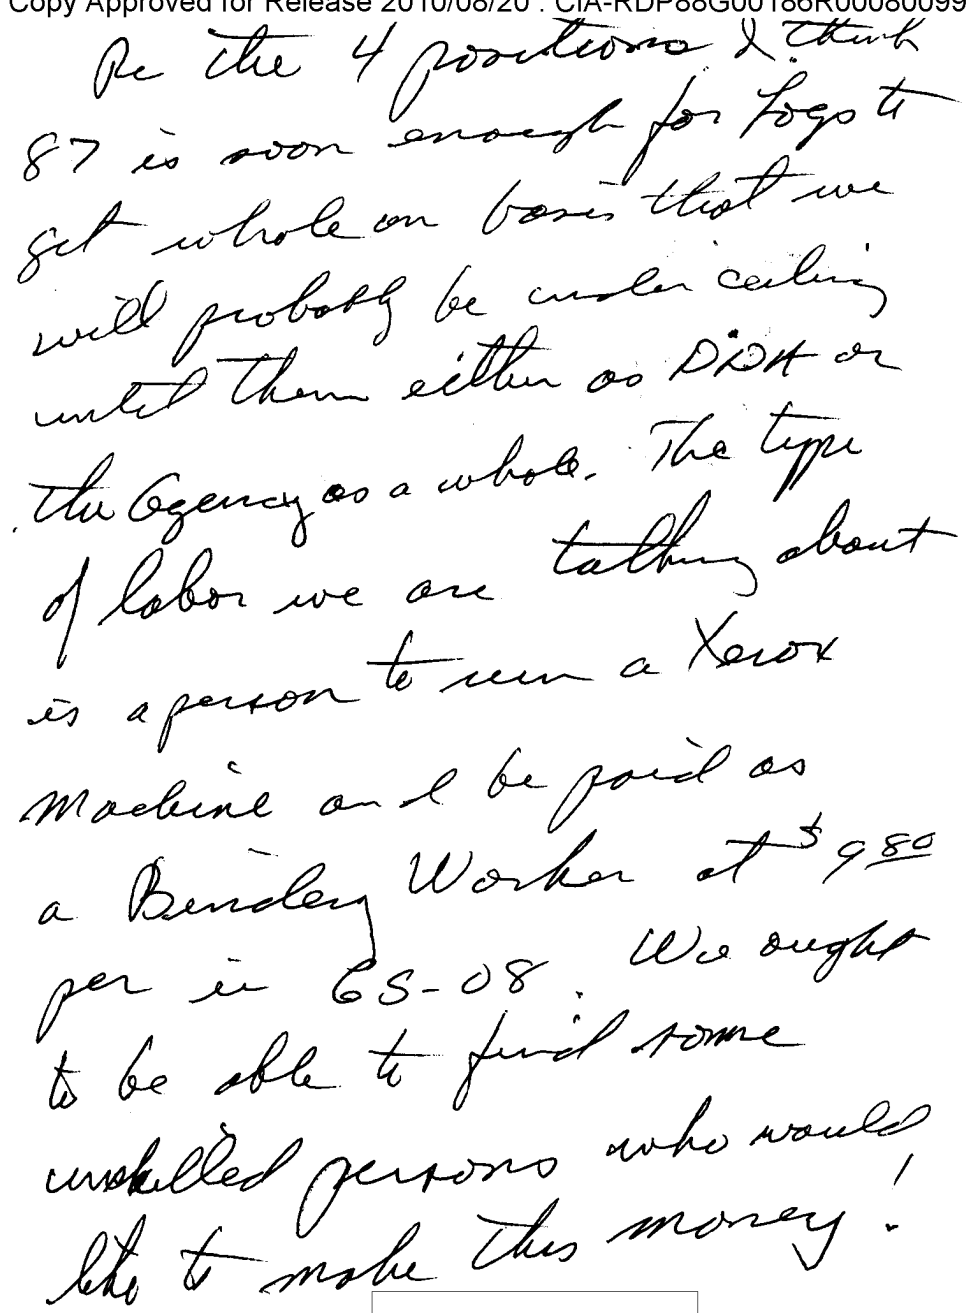 Copy Approved for Release 2010/08/20 : CIA-RDP88G00186R00080099
Re the 4 positions I think
87 is soon enough for Logs to
get whole on basis that we
will probably be under ceiling
until then either as DDA or
the Agency as a whole. The type
of labor we are talking about
is a person to run a Xerox
Machine and be paid as
a Bindery Worker at $9.80
per ie GS-08. We ought
to be able to find some
unskilled persons who would
like to make this money!